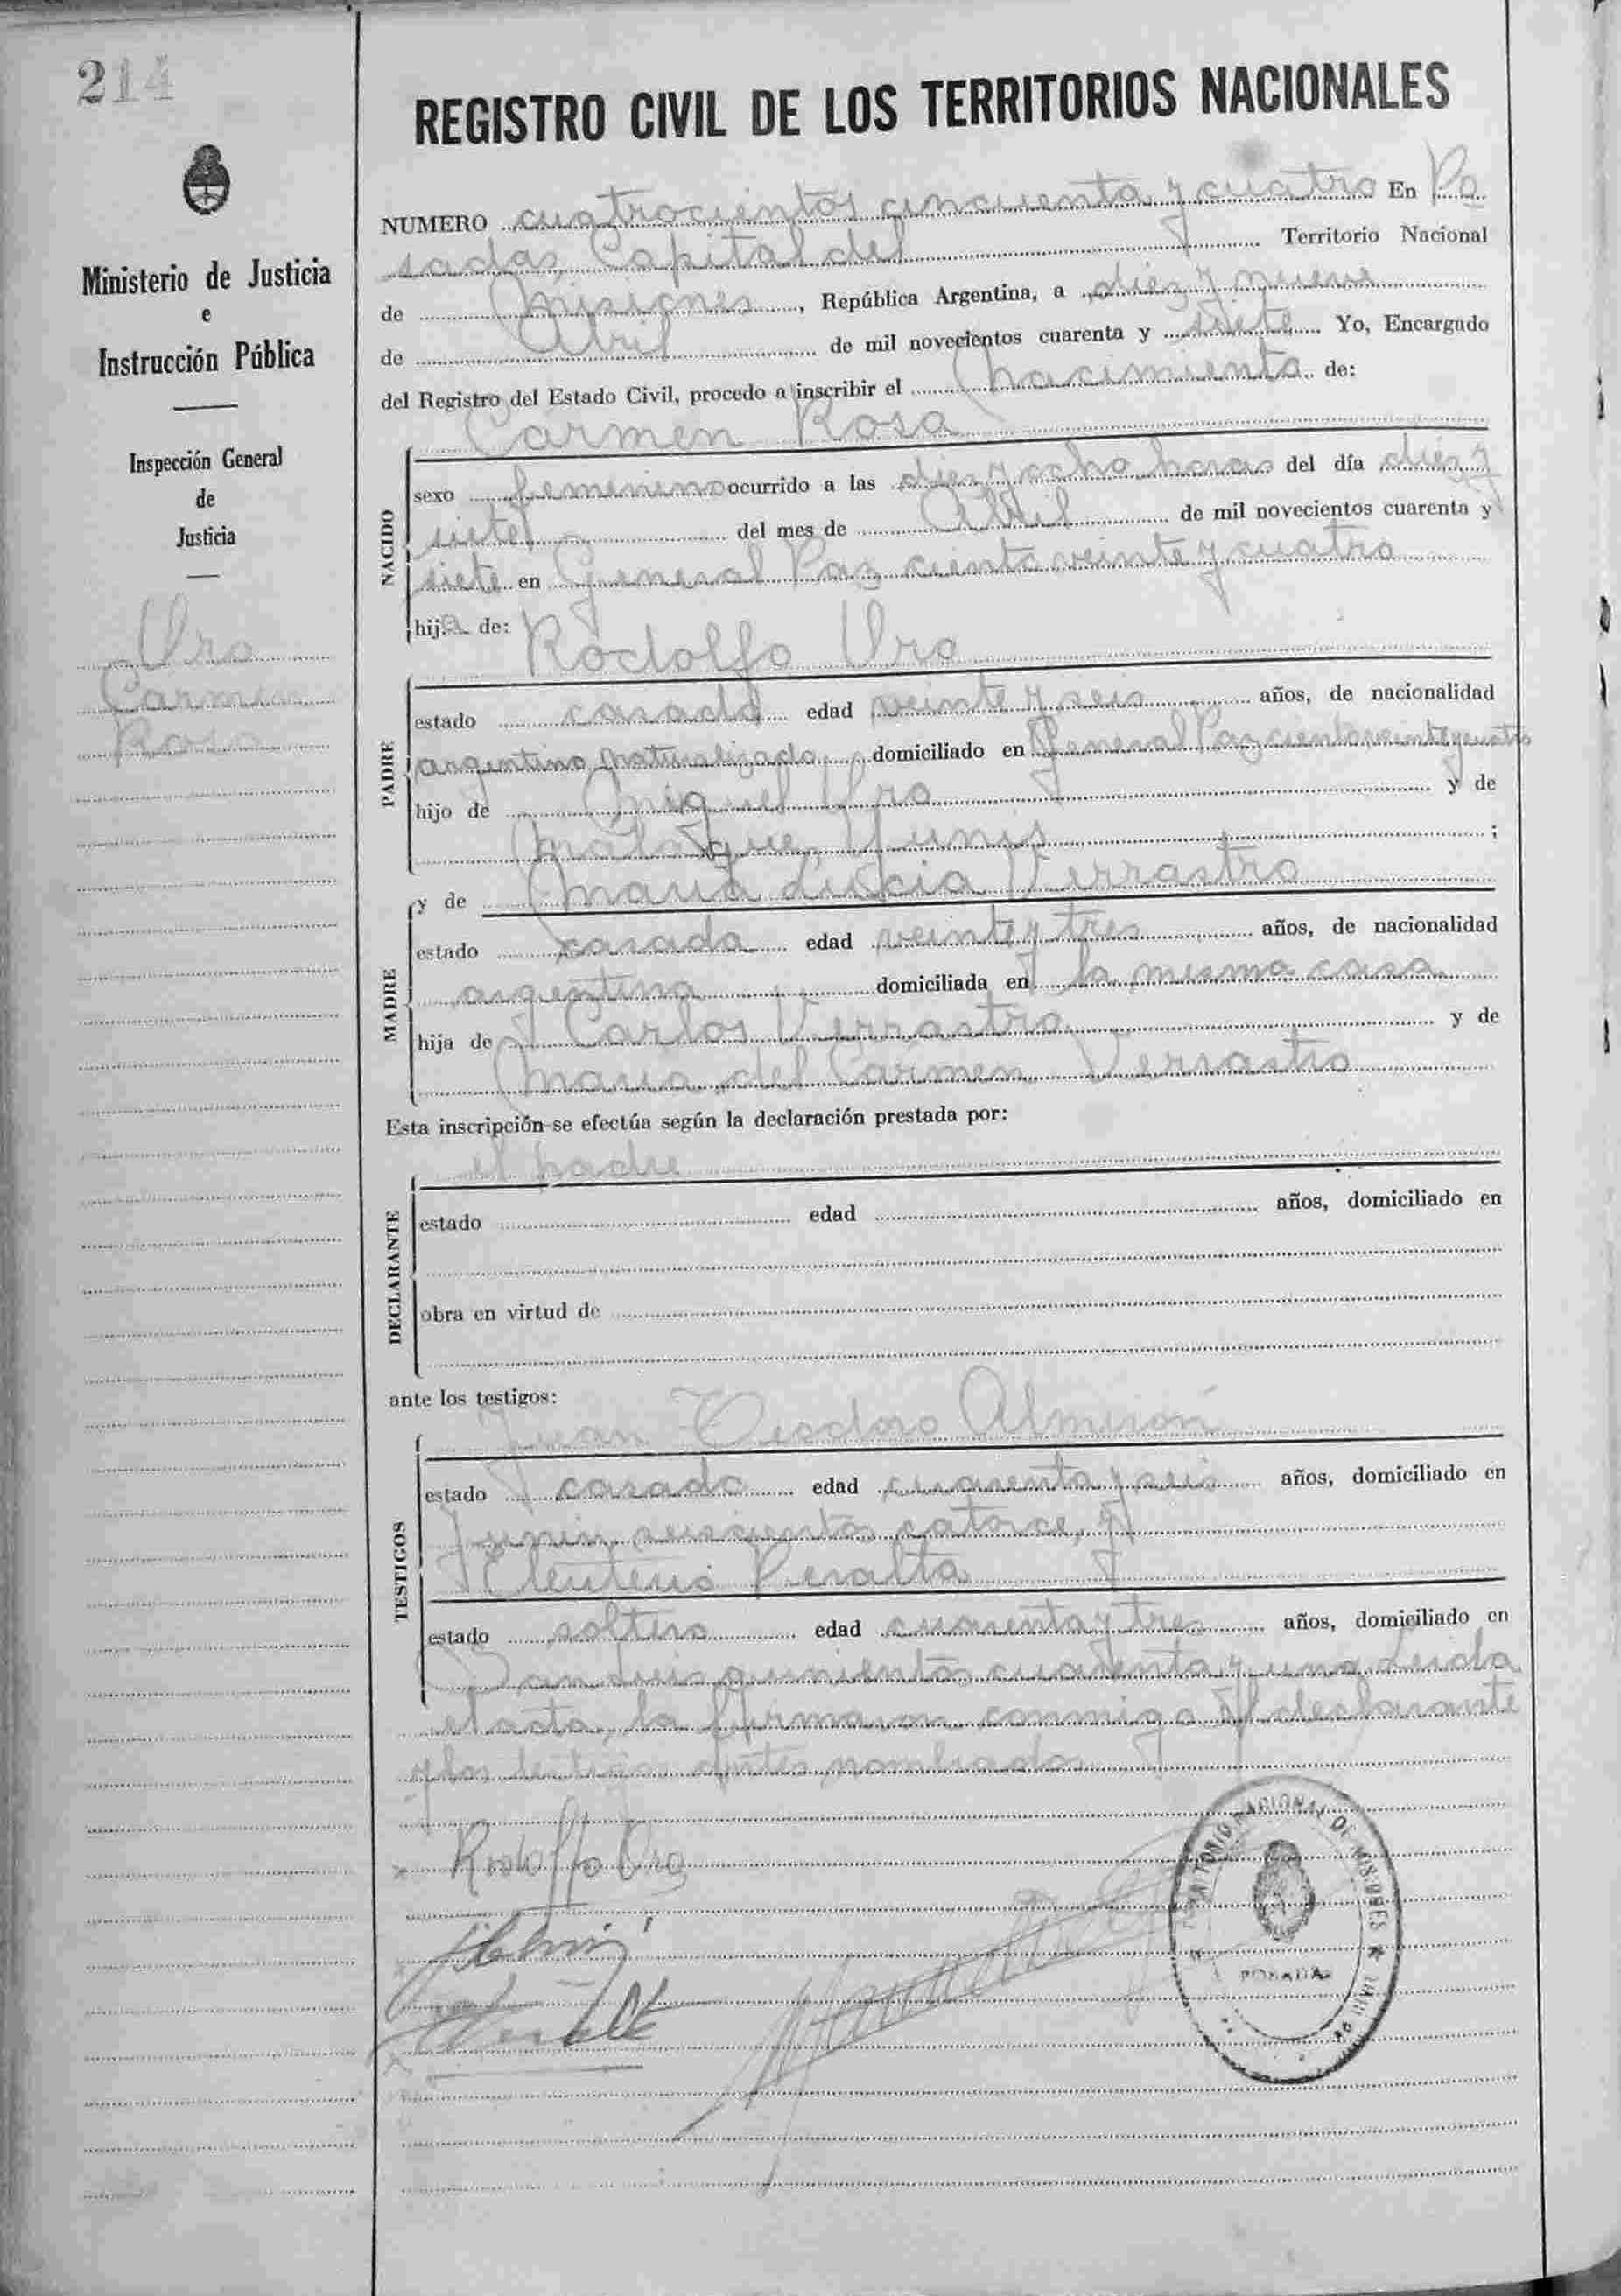 214
Ministerio de Justicia
e
Instrucción Pública
Inspección General
de
Justicia
Oro
Carmen
Rosa
REGISTRO CIVIL DE LOS TERRITORIOS NACIONALES
NUMERO cuatrocientos cincuenta y cuatro En Po
sadas, Capital del Territorio Nacional
de Misiones, República Argentina, a diez y nueve
de Abril de mil novecientos cuarenta y siete Yo, Encargado
del Registro del Estado Civil, procedo a inscribir el nacimiento de:
Carmen Rosa
NACIDO
sexo femenino ocurrido a las diez y ocho horas del día diez y
siete del mes de Abril de mil novecientos cuarenta y
siete en General Paz ciento veinte y cuatro
hija de:
Rodolfo Oro
PADRE
estado casado edad veinte y seis años, de nacionalidad
argentino naturalizado domiciliado en General Paz ciento veinte y cuatro
hijo de Miguel Oro y de
Yunis ;
y de María Verrastro
MADRE
estado casada edad veinte y tres años, de nacionalidad
argentina domiciliada en la misma casa
hija de Carlos Verrastro y de
María del Carmen Verrastro
Esta inscripción se efectúa según la declaración prestada por:
el padre
DECLARANTE
estado edad años, domiciliado en
obra en virtud de
ante los testigos:
Juan Teodoro Almirón
TESTIGOS
estado casado edad cuarenta y seis años, domiciliado en
Junin seiscientos catorce, y
Eleuterio Peralta
estado soltero edad cuarenta y tres años, domiciliado en
San Luis quinientos cuarenta y uno Leida
el acta, la firmaron conmigo el declarante
y los testigos antes nombrados
Rodolfo Oro
TERRITORIO NACIONAL DE MISIONES
POSADAS